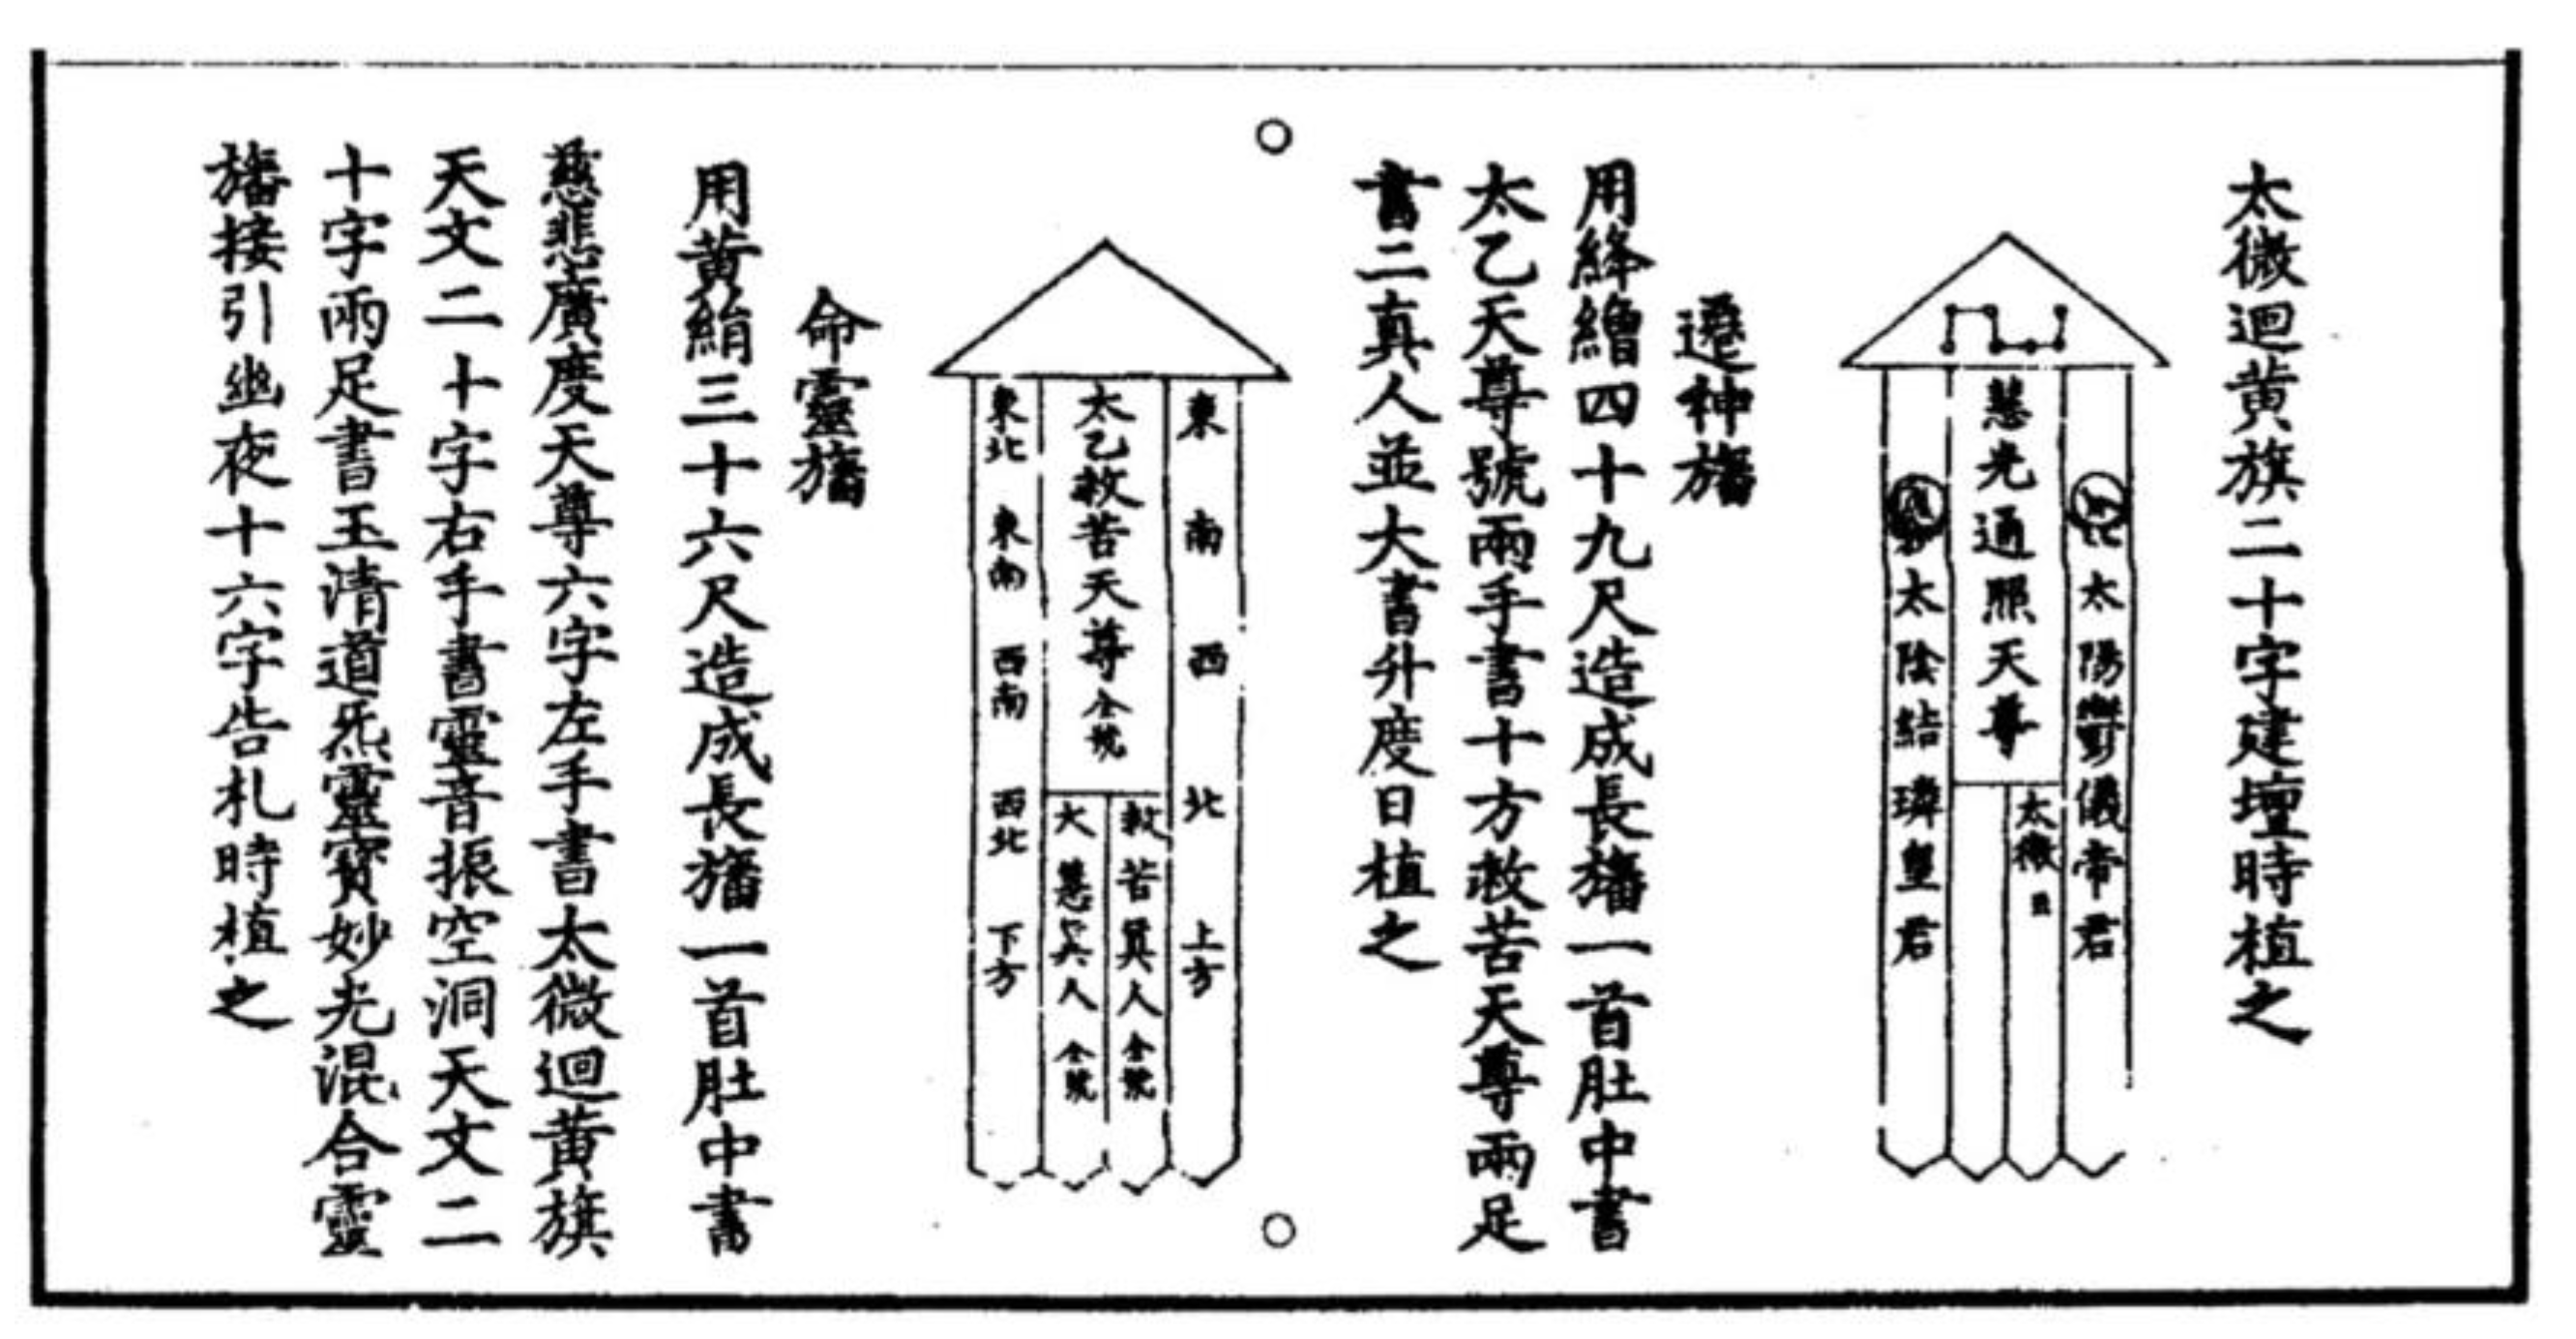 太微迴黄旗二十字建壇時植之
太陽鬱儀帝君
慧光通照天尊
太微
太陰結璘皇君
遷神旛
用絳繒四十九尺造成長旛一首肚中書
太乙天尊號兩手書十方救苦天尊兩足
書二真人並大書升度日植之
東 南 西 北 上方
太乙救苦天尊全號
救苦真人全號
大慧真人全號
東北 東南 西南 西北 下方
命靈旛
用黄絹三十六尺造成長旛一首肚中書
慈悲廣度天尊六字左手書太微迴黄旗
天文二十字右手書靈音振空洞天文二
十字兩足書玉清道炁靈寶妙光混合靈
旛接引幽夜十六字告札時植之